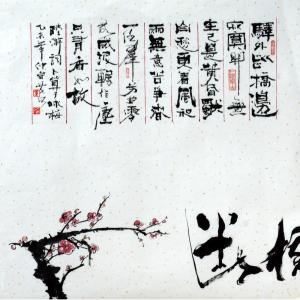 驛外斷橋邊
寂寞開無
主已是黄昏獨
自愁更著風和
雨無意苦爭春
一任群芳妒零
落成泥輾作塵
只有香如故
陸游詞卜算子咏梅
乙未年仲